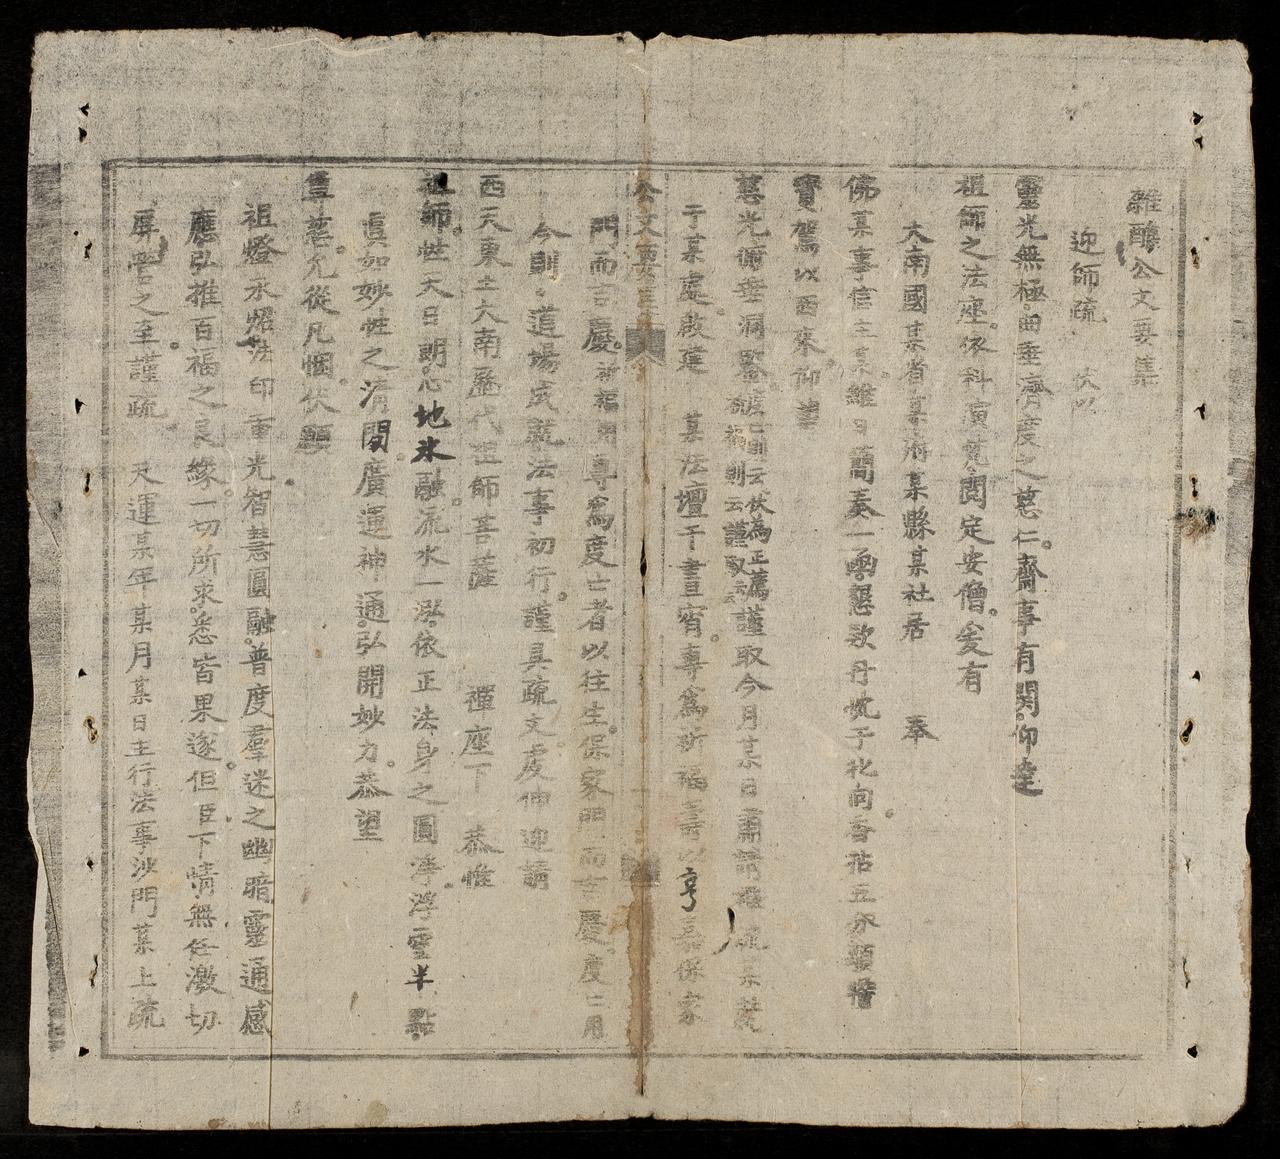 雜酬公文要集
迎師疏 伏以
靈光無極曲垂濟度之慈仁齋事有関仰達
祖師之法座依科演梵関定安僧爰有
大南國某省某府某縣某社居 奉
佛某事信主某維日簡奏一函懇欵丹忱于北向香祜五分願懵
寳駕以西來仰
慈光俯垂洞鑒薦則云伏為正薦
福則云謹取云云
謹取今月某日肅請禪流某梵
于某處啟建 某法壇干晝宵專為祈福壽以亨嘉保家
公文要集
門而吉慶祈福用專為度亡者以往生保家門而吉慶度亡用
今則道場成就法事初行謹具疏文虔伸迎請
西天東土大南歷代祖師菩薩 禪座下 恭惟
祖師性天日朗心地氷融流水一泓依正法身之圓淨浮雲半點
真如妙性之清閒廣運神通弘開妙力恭望
尊慈允從凡悃伏願
祖燈永耀法印重光智慧圓融普度羣迷之幽暗靈通感
應弘推百福之良緣一切所求悉皆果遂但臣下情無任激切
屏營之至謹疏 天運某年某月某日主行法事沙門某上疏